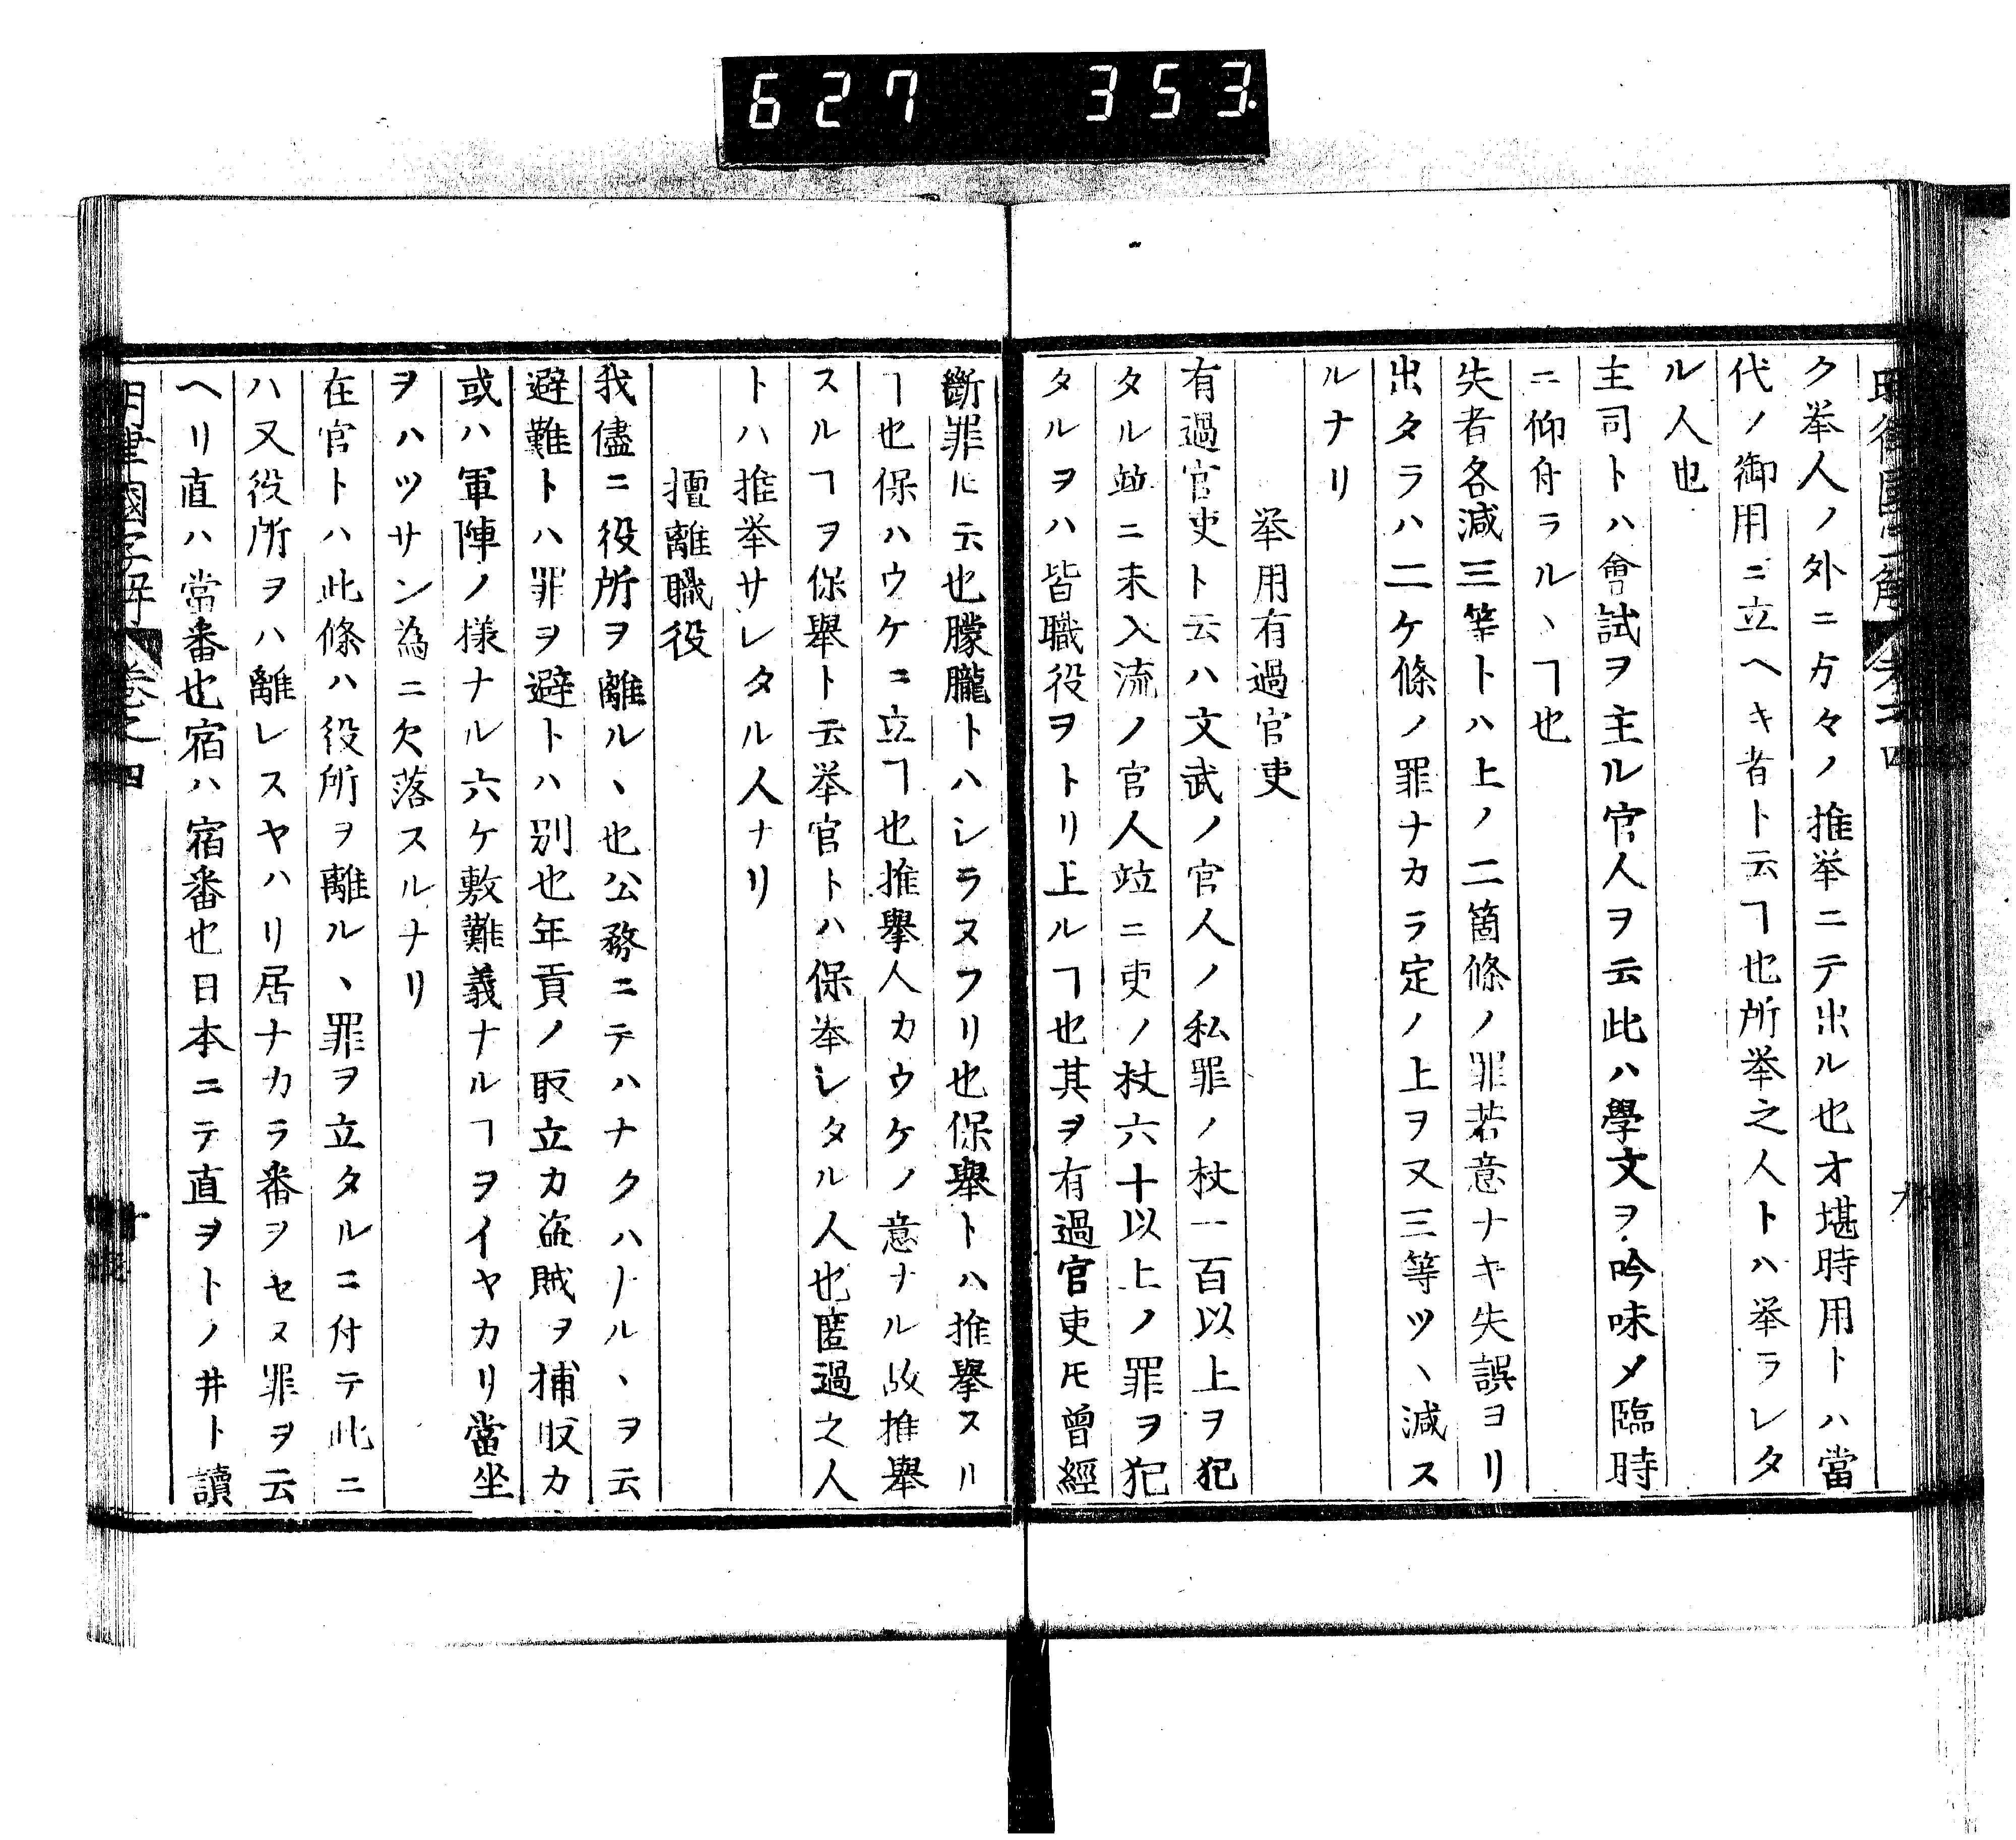 627 353
ク挙人ノ外ニ方々ノ推挙ニテ出ル也才堪時用トハ當
代ノ御用ニ立ヘキ者ト云ヿ也所挙之人トハ挙ラレタ
ル人也
主司トハ會試ヲ主ル官人ヲ云此ハ學文ヲ吟味メ臨時
ニ仰舟ラルヽヿ也
失者各減三等トハ上ノ二箇條ノ罪若意ナキ失誤ヨリ
出タラハ二ケ條ノ罪ナカラ定ノ上ヲ又三等ツヽ減ス
ルナリ
挙用有過官吏
有過官吏ト云ハ文武ノ官人ノ私罪ノ杖一百以上ヲ犯
タル並ニ未入流ノ官人竝ニ吏ノ杖六十以上ノ罪ヲ犯
タルヲハ皆職役ヲトリ上ルヿ也其ヲ有過官吏ㇳモ曾經
斷罪ㇳ云也朦朧トハシラヌフリ也保舉トハ推擧スル
ヿ也保ハウケニ立ヿ也推擧人カウケノ意ナル故推舉
スルヿヲ保舉ト云挙官トハ保挙シタル人也匿過之人
トハ推挙サレタル人ナリ
擅離職役
我儘ニ役所ヲ離ルヽ也公務ニテハナクハナルヽヲ云
避難トハ罪ヲ避トハ別也年貢ノ取立カ盗賊ヲ捕取カ
或ハ軍陣ノ様ナル六ケ敷難義ナルヿヲイヤカリ當坐
ヲハツサン為ニ欠落スルナリ
在官トハ此條ハ役所ヲ離ルヽ罪ヲ立タルニ付テ此ニ
ハ又役所ヲハ離レスヤハリ居ナカラ番ヲセヌ罪ヲ云
ヘリ直ハ當番也宿ハ宿番也日本ニテ直ヲトノ井ト讀
明律國字解 卷之四